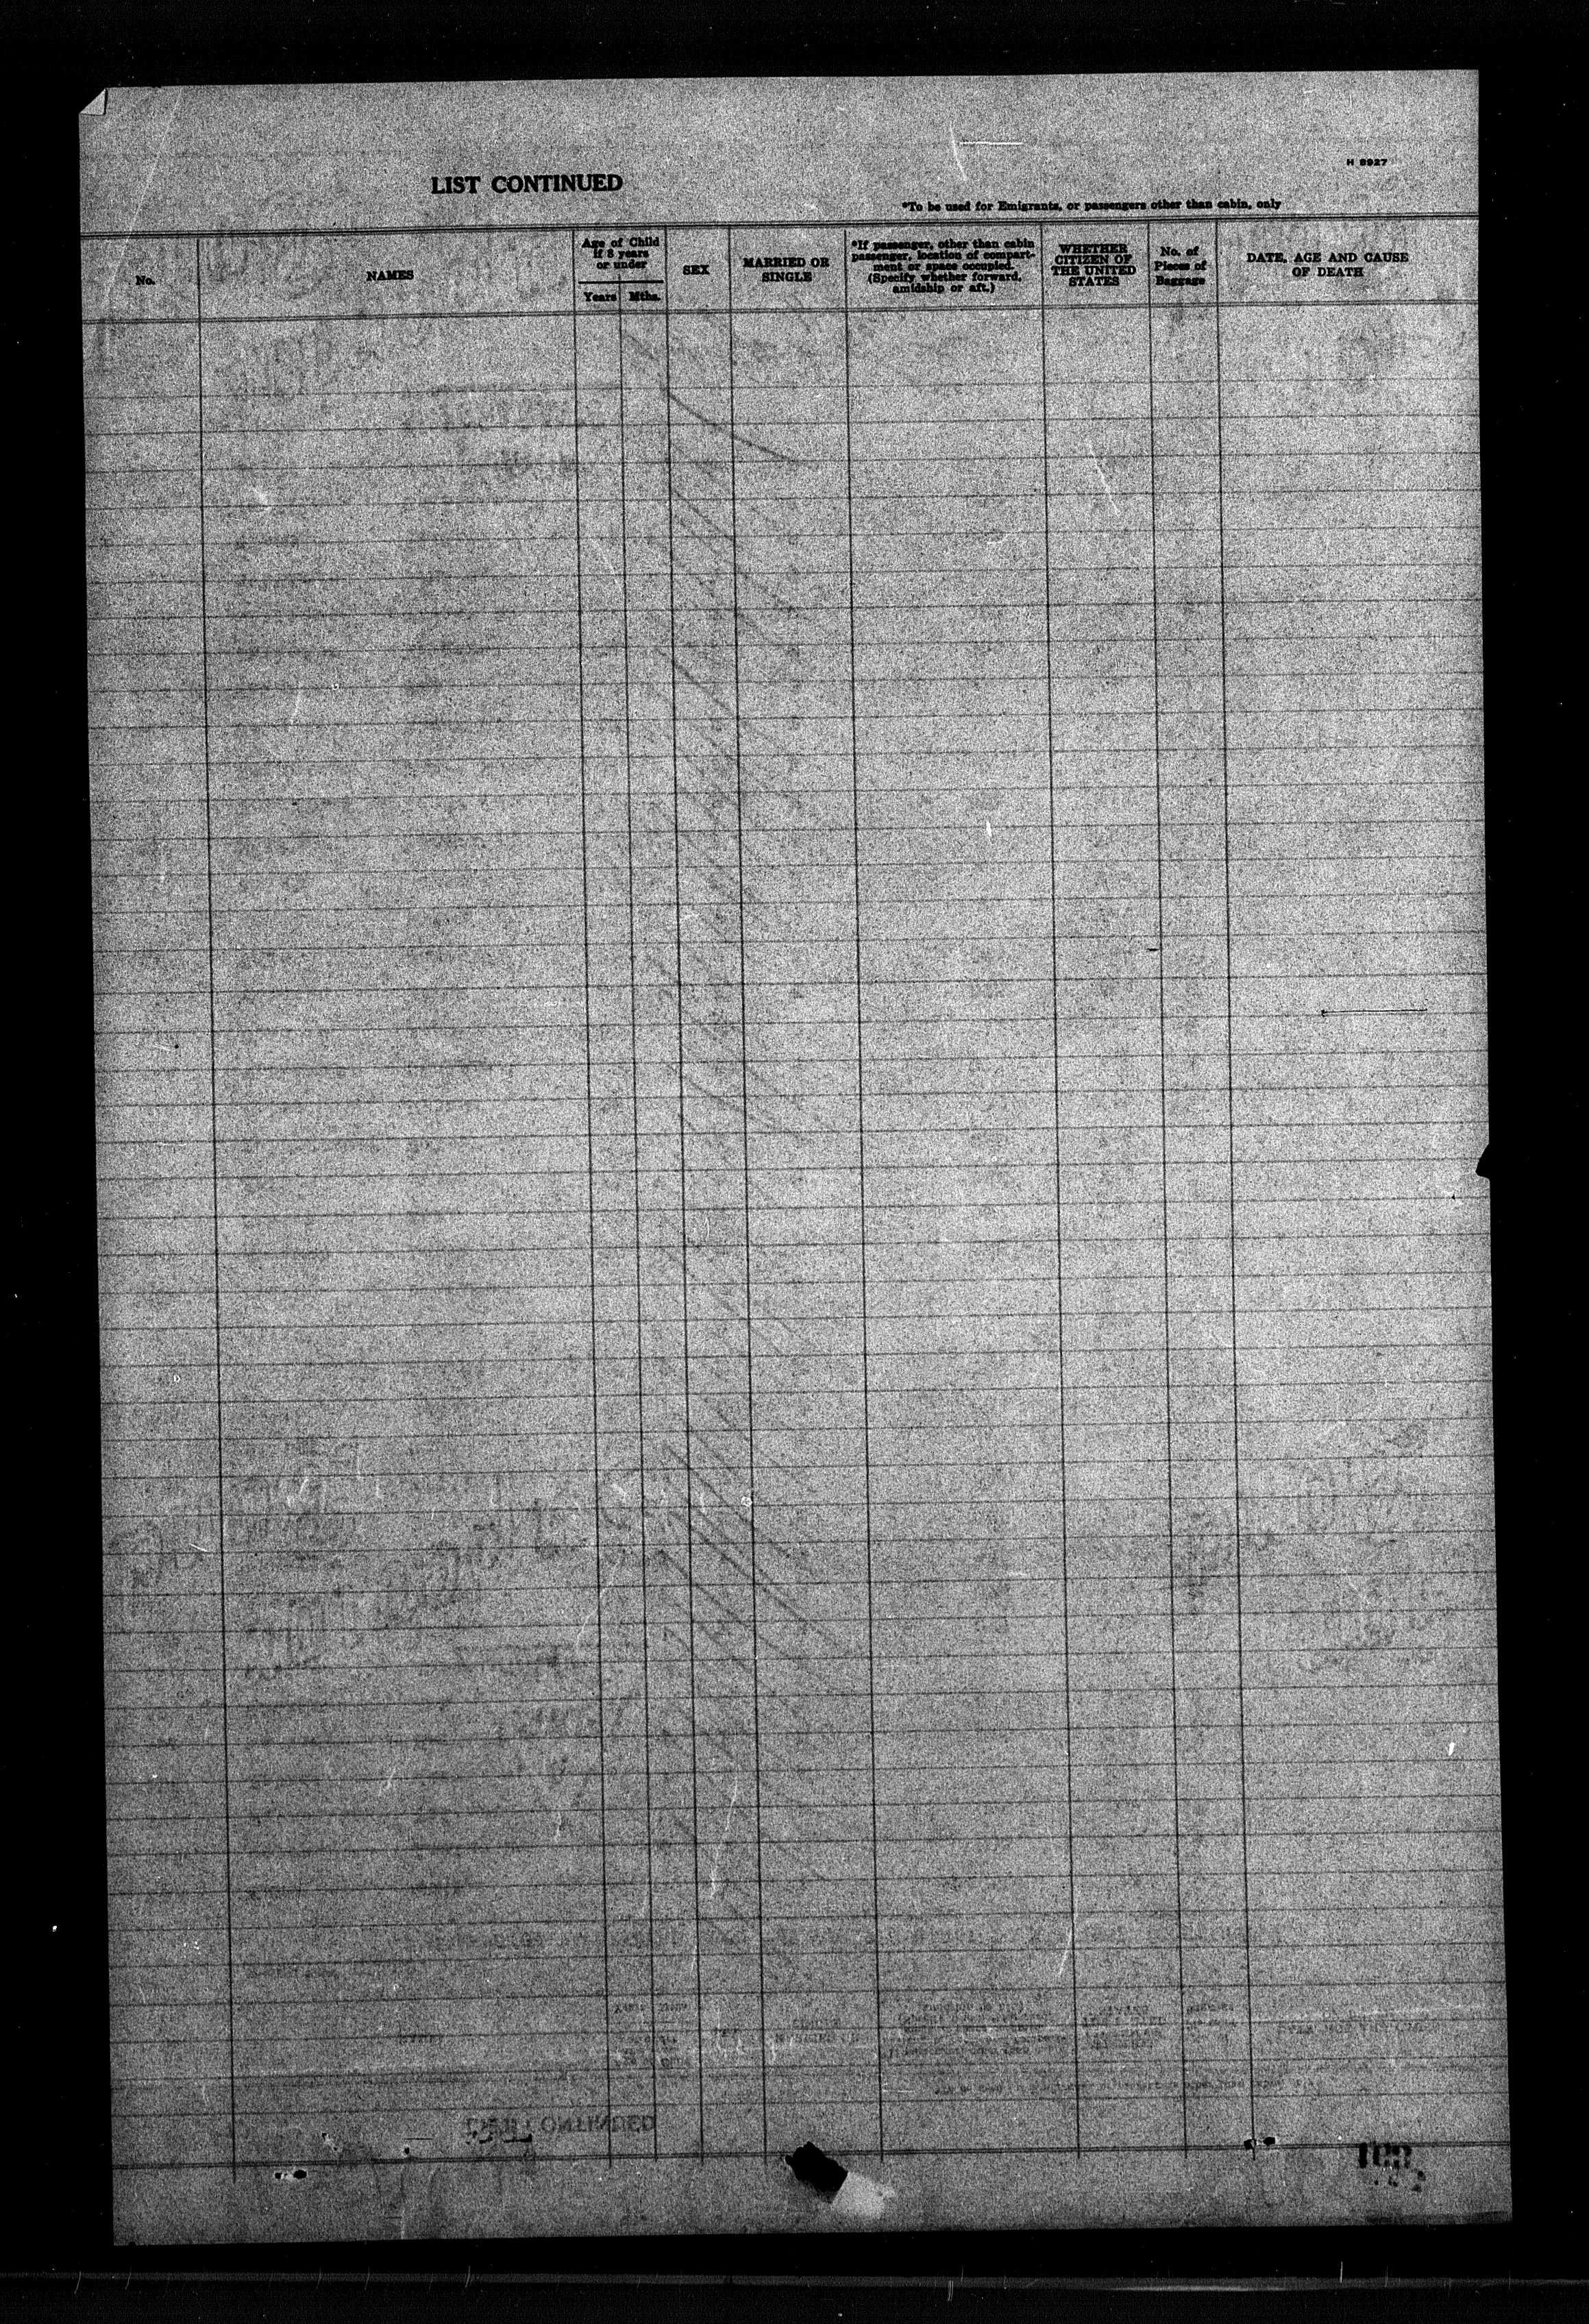 H 8927
LIST CONTINUED
*To be used for Emigrants, or passengers other than cabin, only
No.
NAMES
Age of Child
if 8 years
or under
Years Mths.
SEX
MARRIED OR
SINGLE
*If passenger, other than cabin
passenger, location of compart-
ment or space occupied.
(Specify whether forward,
amidship or aft.)
WHETHER
CITIZEN OF
THE UNITED
STATES
No. of
Pieces of
Baggage
DATE, AGE AND CAUSE
OF DEATH